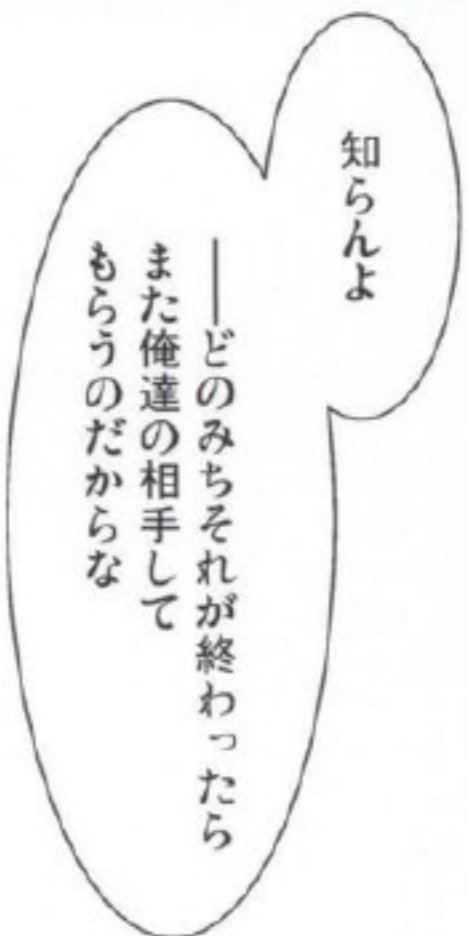 知らんよ
――どのみちそれが終わったら
また俺達の相手して
もらうのだからな